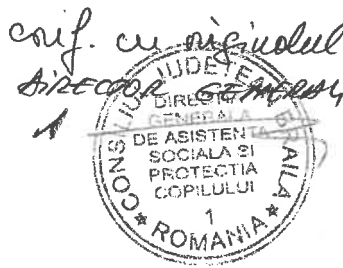 conf. cu originalul
DIRECTOR GENERAL
CONSILIUL JUDETEAN BRAILA
DIRECTIA
GENERALA
DE ASISTENTA
SOCIALA SI
PROTECTIA
COPILULUI
1
ROMANIA